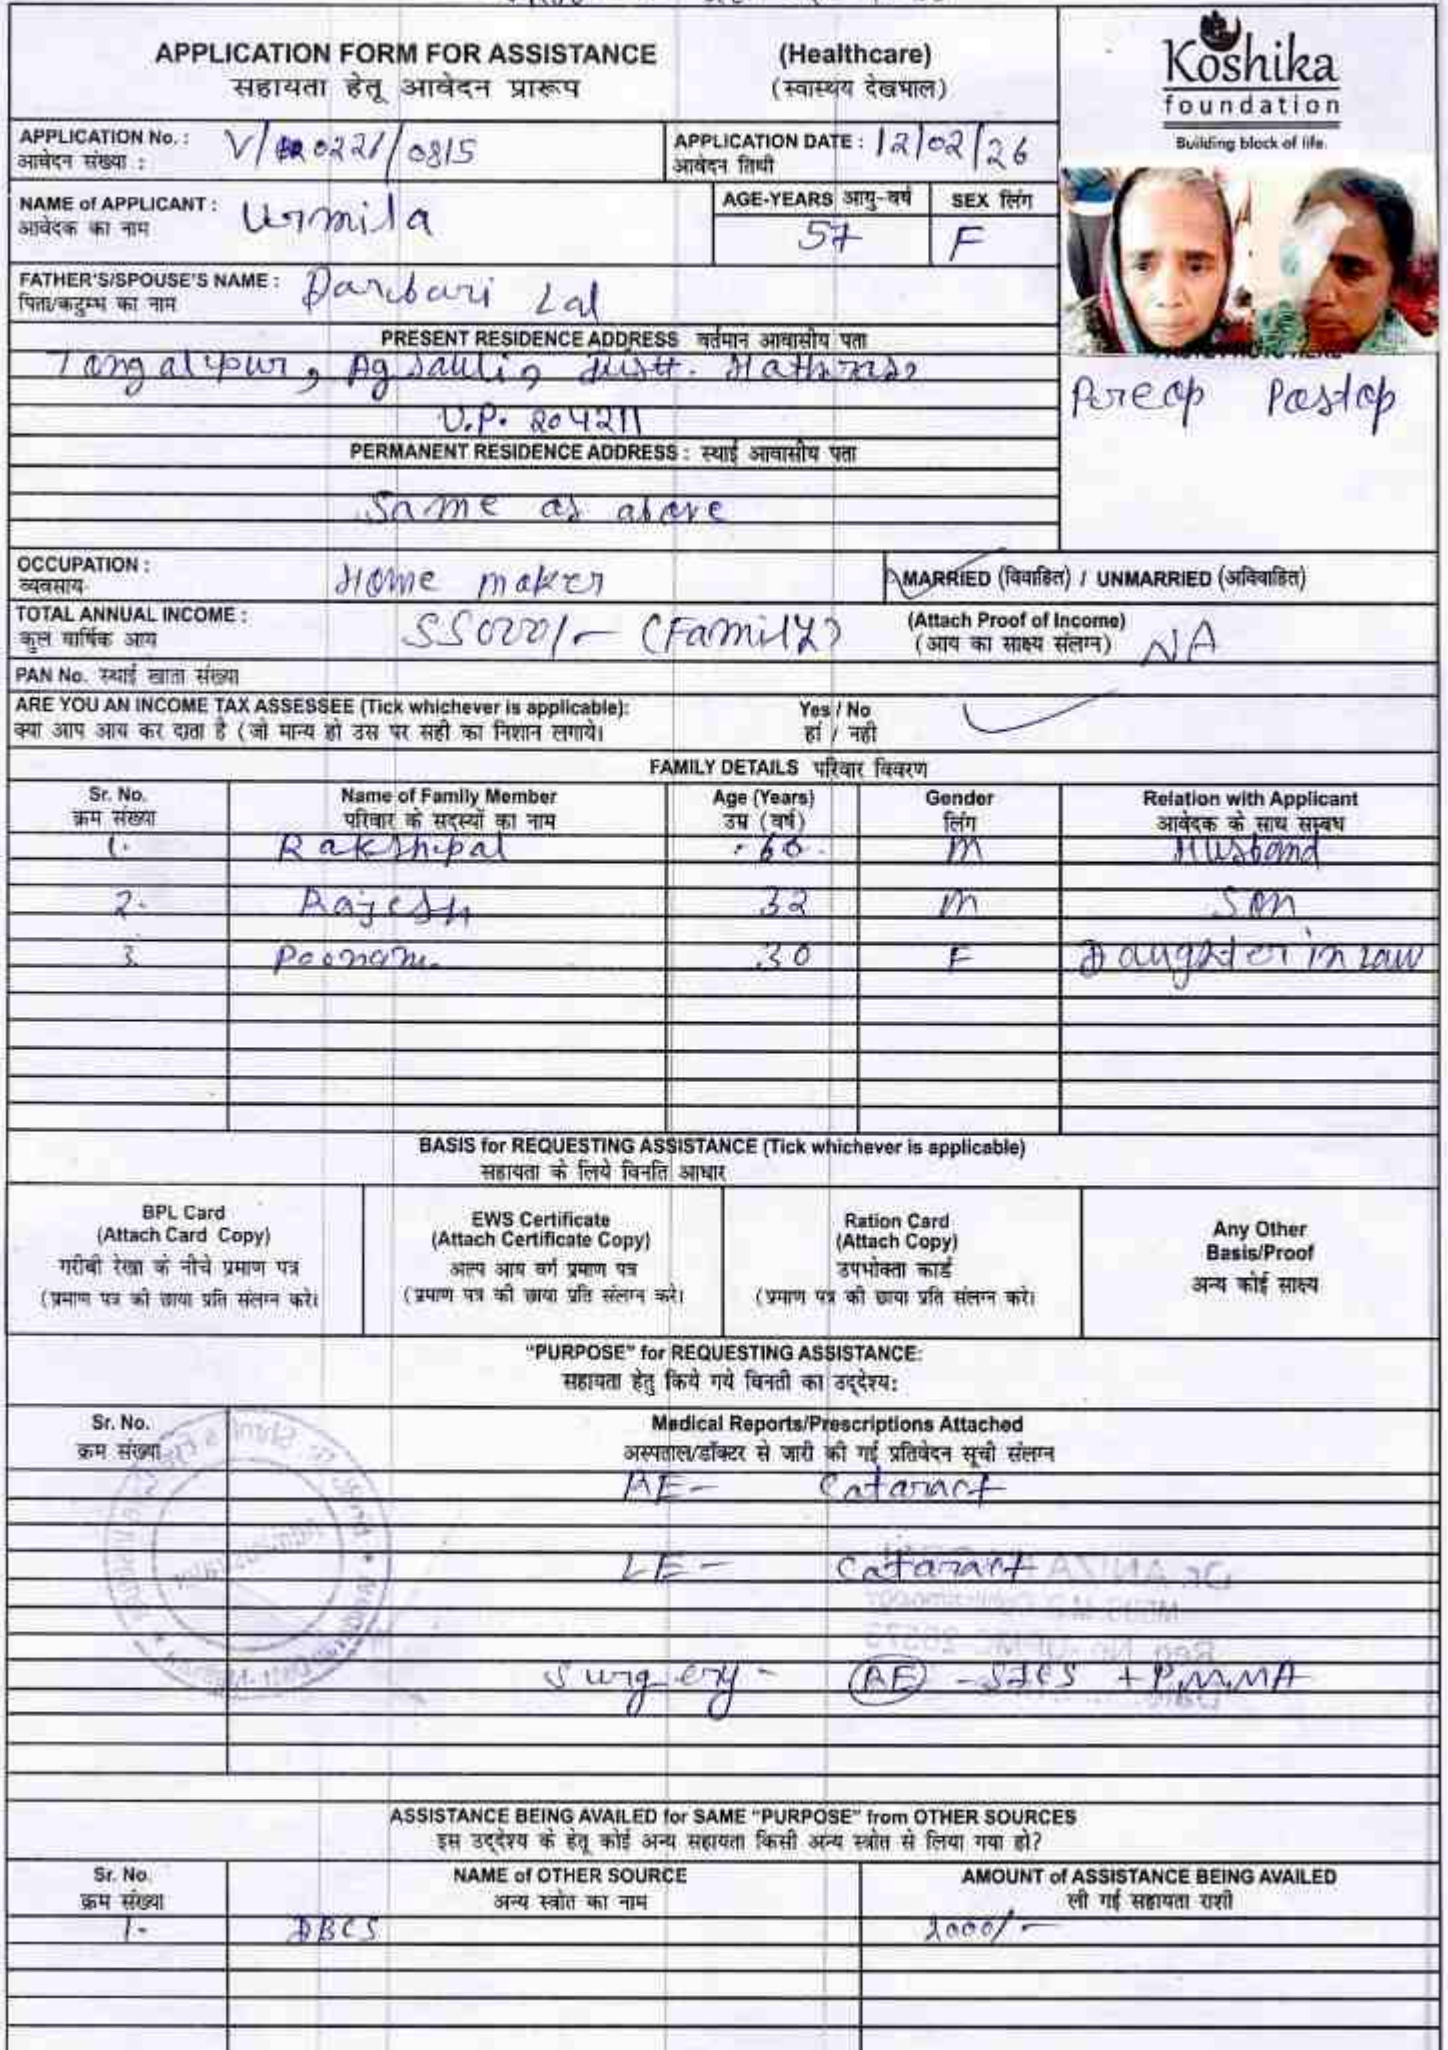 APPLICATION FORM FOR ASSISTANCE (Healthcare)
सहायता हेतू आवेदन प्रारूप (स्वास्थय देखभाल)
Koshika
foundation
Building block of life.
APPLICATION No. : V/ 0221/0815
आवेदन संख्या :
APPLICATION DATE : 12/02/26
आवेदन तिथी
NAME of APPLICANT : Urmila
आवेदक का नाम
AGE-YEARS आयु-वर्ष SEX लिंग
57 F
FATHER'S/SPOUSE'S NAME : Darbari Lal
पिता/कटुम्भ का नाम
PRESENT RESIDENCE ADDRESS वर्तमान आवासीय पता
Tangalipur, Agsauli, distt. Hathras,
U.P. 204211
Preop Postop
PERMANENT RESIDENCE ADDRESS : स्थाई आवासीय पता
Same as above
OCCUPATION : Home maker
व्यवसाय
MARRIED (विवाहित) / UNMARRIED (अविवाहित)
TOTAL ANNUAL INCOME : 55000/- (Family)
कुल वार्षिक आय
(Attach Proof of Income) NA
(आय का साक्ष्य संलग्न)
PAN No. स्थाई खाता संख्या
ARE YOU AN INCOME TAX ASSESSEE (Tick whichever is applicable): Yes / No
क्या आप आय कर दाता है (जो मान्य हो उस पर सही का निशान लगाये। हां / नही
FAMILY DETAILS परिवार विवरण
Sr. No. Name of Family Member Age (Years) Gender Relation with Applicant
क्रम संख्या परिवार के सदस्यों का नाम उम्र (वर्ष) लिंग आवेदक के साथ सम्बध
1. Rakshpal 60 M Husband
2. Rajesh 32 M Son
3. Poonam 30 F Daughter in law
BASIS for REQUESTING ASSISTANCE (Tick whichever is applicable)
सहायता के लिये विनति आधार
BPL Card
(Attach Card Copy)
गरीबी रेखा के नीचे प्रमाण पत्र
(प्रमाण पत्र की छाया प्रति संलग्न करे।
EWS Certificate
(Attach Certificate Copy)
अल्प आय वर्ग प्रमाण पत्र
(प्रमाण पत्र की छाया प्रति संलग्न करे।
Ration Card
(Attach Copy)
उपभोक्ता कार्ड
(प्रमाण पत्र की छाया प्रति संलग्न करे।
Any Other
Basis/Proof
अन्य कोई साक्ष्य
"PURPOSE" for REQUESTING ASSISTANCE:
सहायता हेतु किये गये विनती का उद्देश्य:
Sr. No. Medical Reports/Prescriptions Attached
क्रम संख्या अस्पताल/डॉक्टर से जारी की गई प्रतिवेदन सूची संलग्न
RE- Cataract
LE- Cataract
Surgery - RE - SICS + PMMA
ASSISTANCE BEING AVAILED for SAME "PURPOSE" from OTHER SOURCES
इस उद्देश्य के हेतू कोई अन्य सहायता किसी अन्य स्त्रोत से लिया गया हो?
Sr. No. NAME of OTHER SOURCE AMOUNT of ASSISTANCE BEING AVAILED
क्रम संख्या अन्य स्त्रोत का नाम ली गई सहायता राशी
1. DBCS 2000/-